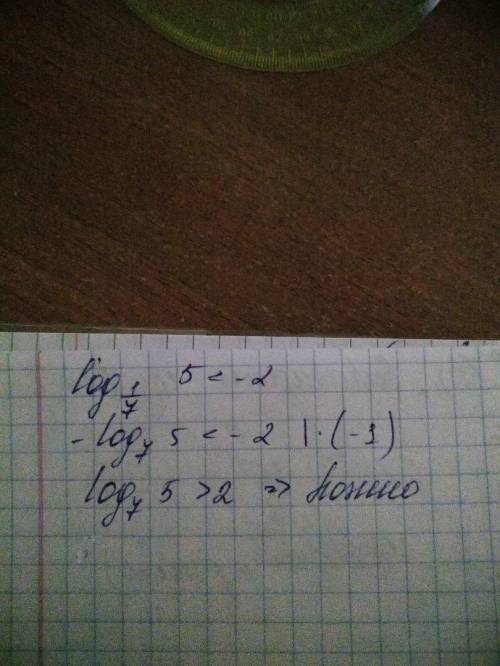 log 1/7 5 < -2
- log7 5 < -2 | · (-1)
log7 5 > 2 => ложно